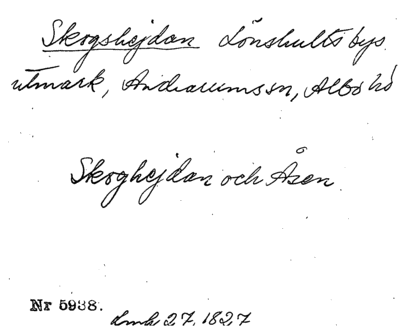 Skogshejdan Lönshults bys
utmark, Andrarums sn, Albo hd
Skoghejdan och Åsen.
Nr 5938.
lmh 27, 1827